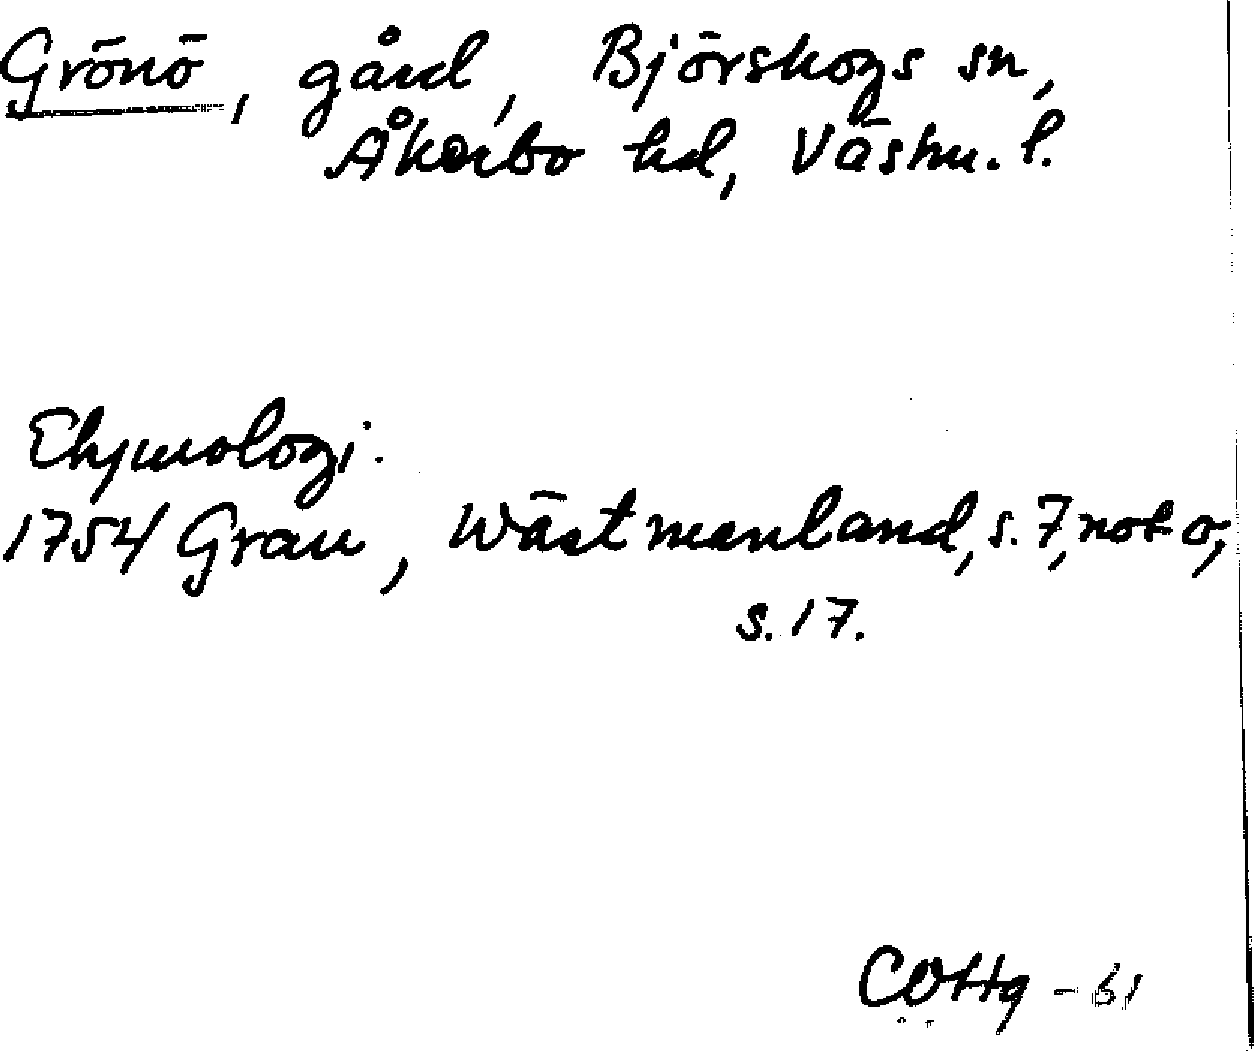 Grönö, gård, Björskogs sn,
Åkerbo hd, Västm. l.
Etymologi.
1754 Grau, Wästmanland, s. 7, not o,
s. 17.
COHg - 61